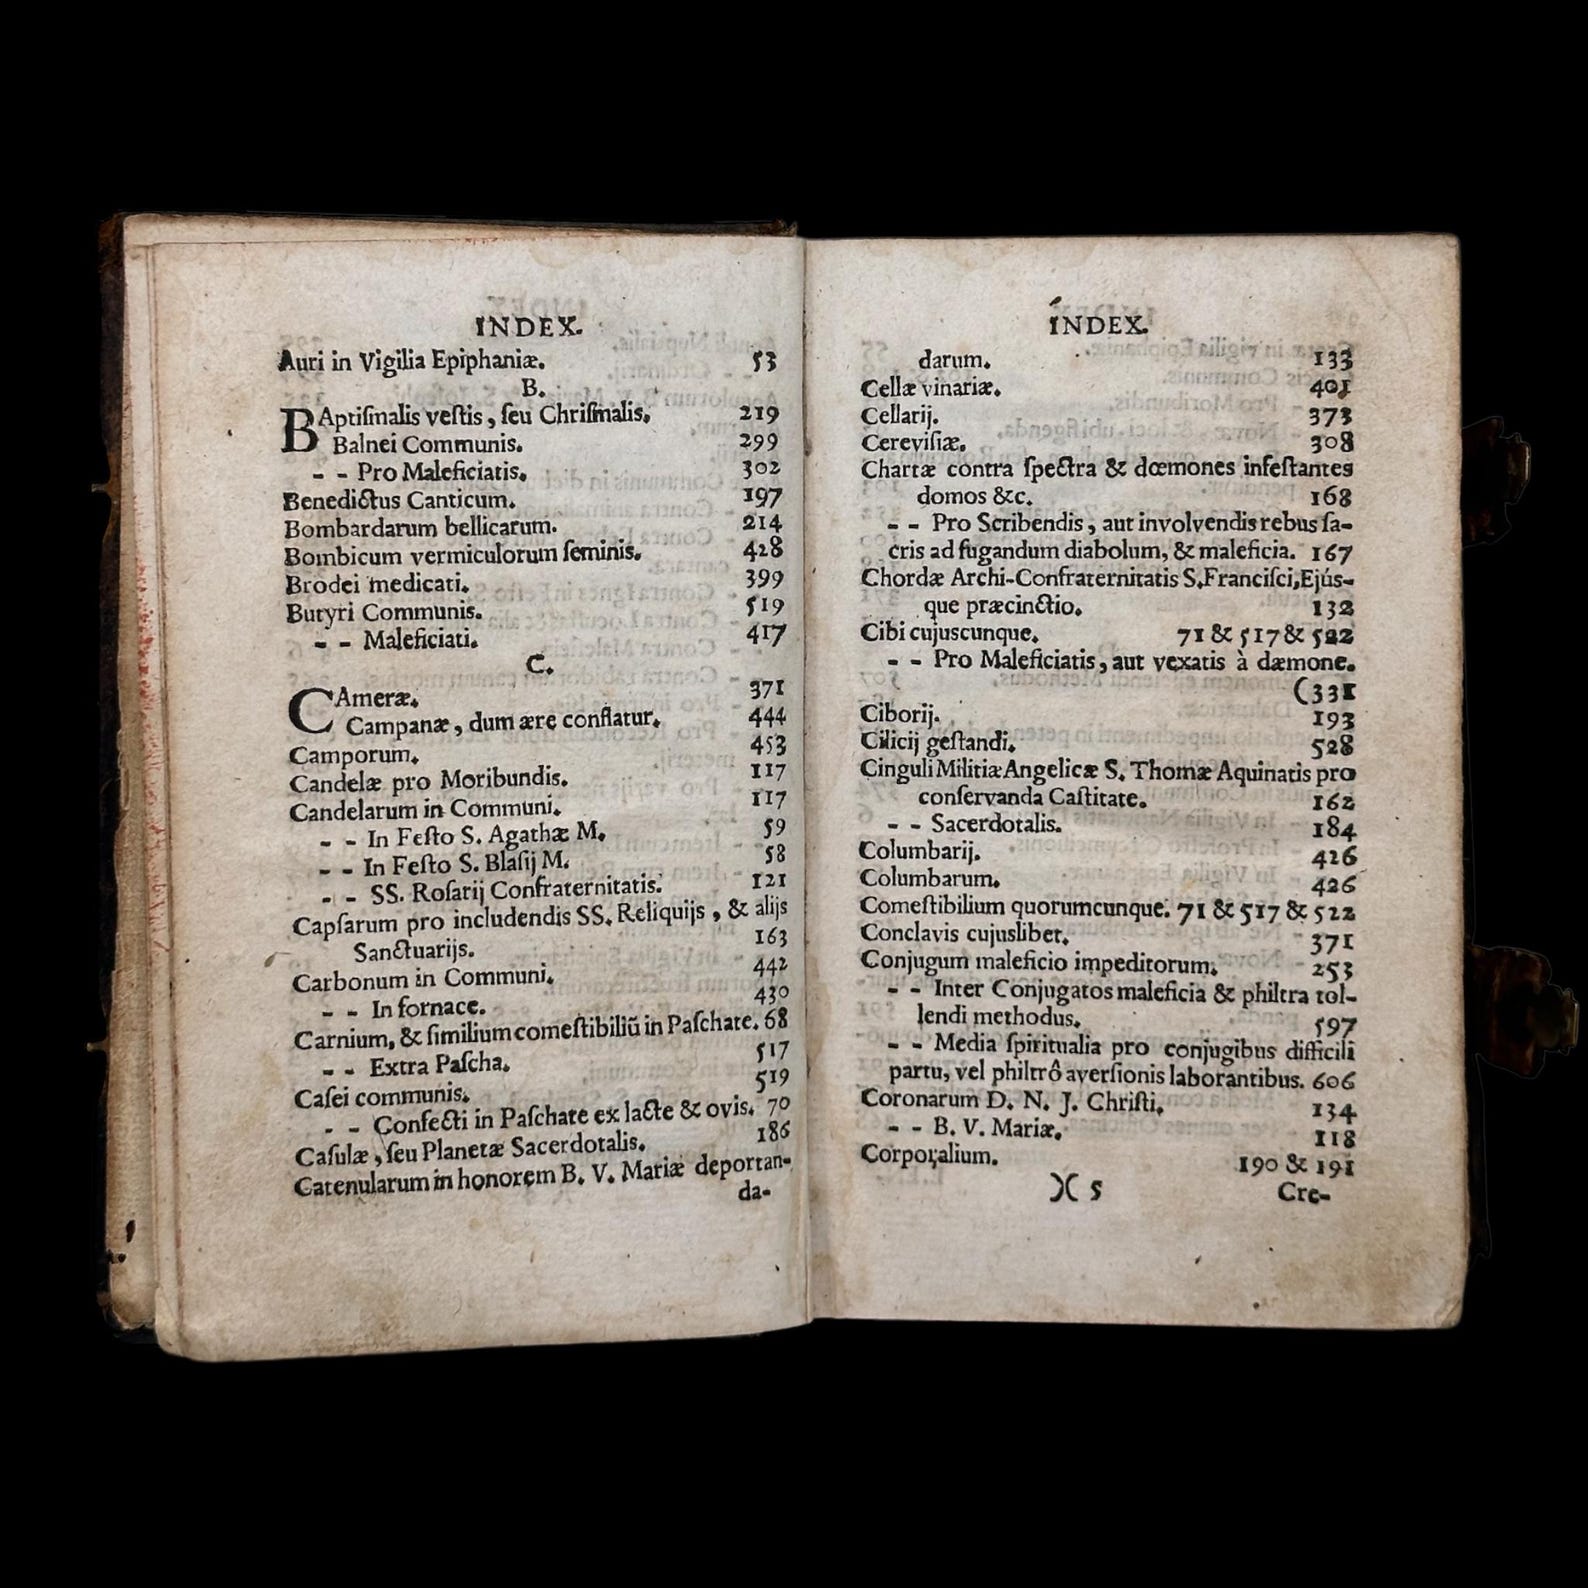 INDEX.
Auri in Vigilia Epiphaniæ. 53
B.
BAptiſmalis veſtis, ſeu Chriſmalis. 219
Balnei Communis. 299
- - Pro Maleficiatis. 302
Benedictus Canticum. 197
Bombardarum bellicarum. 214
Bombicum vermiculorum ſeminis. 428
Brodei medicati. 399
Butyri Communis. 519
- - Maleficiati. 417
C.
CAmeræ. 371
Campanæ, dum ære conflatur. 444
Camporum. 453
Candelæ pro Moribundis. 117
Candelarum in Communi. 117
- - In Feſto S. Agathæ M. 59
- - In Feſto S. Blaſij M. 58
- - SS. Roſarij Confraternitatis. 121
Capſarum pro includendis SS. Reliquijs, & alijs
Sanctuarijs. 163
Carbonum in Communi. 442
- - In fornace. 430
Carnium, & ſimilium comeſtibiliũ in Paſchate. 68
- - Extra Paſcha. 517
Caſei communis. 519
- - Confecti in Paſchate ex lacte & ovis. 70
Caſulæ, ſeu Planetæ Sacerdotalis. 186
Catenularum in honorem B. V. Mariæ deportan-
da-
INDEX.
darum. 133
Cellæ vinariæ. 401
Cellarij. 373
Cereviſiæ. 308
Chartæ contra ſpectra & dœmones infeſtantes
domos &c. 168
- - Pro Scribendis, aut involvendis rebus ſa-
cris ad fugandum diabolum, & maleficia. 167
Chordæ Archi-Confraternitatis S. Franciſci, Ejús-
que præcinctio. 132
Cibi cujuscunque. 71 & 517 & 522
- - Pro Maleficiatis, aut vexatis à dæmone.
(331
Ciborij. 193
Cilicij geſtandi. 528
Cinguli Militiæ Angelicæ S. Thomæ Aquinatis pro
conſervanda Caſtitate. 162
- - Sacerdotalis. 184
Columbarij. 426
Columbarum. 426
Comeſtibilium quorumcunque. 71 & 517 & 522
Conclavis cujuslibet. 371
Conjugum maleficio impeditorum. 253
- - Inter Conjugatos maleficia & philtra tol-
lendi methodus. 597
- - Media ſpiritualia pro conjugibus difficili
partu, vel philtrô averſionis laborantibus. 606
Coronarum D. N. J. Chriſti. 134
- - B. V. Mariæ. 118
Corporalium. 190 & 191
)( 5 Cre-